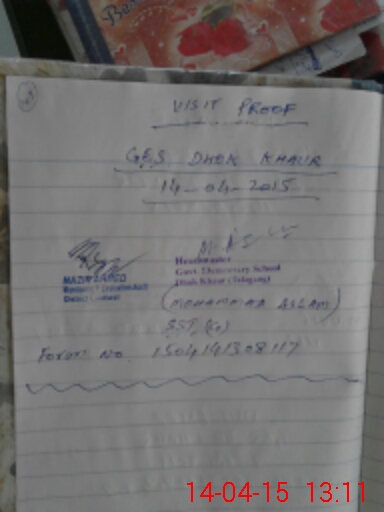 VISIT PROOF
GES DHOK KHAUR
14-04-2015
Headmaster
Govt. Elementary School
Dhok Khaur (Talagang)
(MOHAMMAD ASLAM)
SST, (Sc)
Form No 1504141308117
14-04-15 13:11